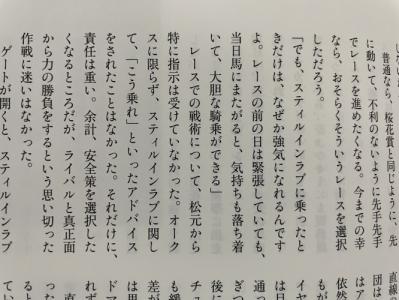 しないよ
普通なら、桜花賞と同じように、先
に動いて、不利のないように先手先手
でレースを進めたくなる。今までの幸
なら、おそらくそういうレースを選択
しただろう。
「でも、スティルインラブに乗ったと
きだけは、なぜか強気になれるんです
よ。レースの前の日は緊張していても、
当日馬にまたがると、気持ちも落ち着
いて、大胆な騎乗ができる」
レースでの戦術について、松元から
特に指示は受けていなかった。オーク
スに限らず、スティルインラブに関し
て、「こう乗れ」といったアドバイス
をされたことはなかった。それだけに、
責任は重い。余計、安全策を選択した
くなるところだが、ライバルと真正面
から力の勝負をするという思い切った
作戦に迷いはなかった。
ゲートが開くと、スティルインラブ
直線
団は
はア
依然
もが
イヤ
は日
通っ
ぎつ
後に
チュ
も緩
差が
は思
ドマ
れず
直
った
ると
てい